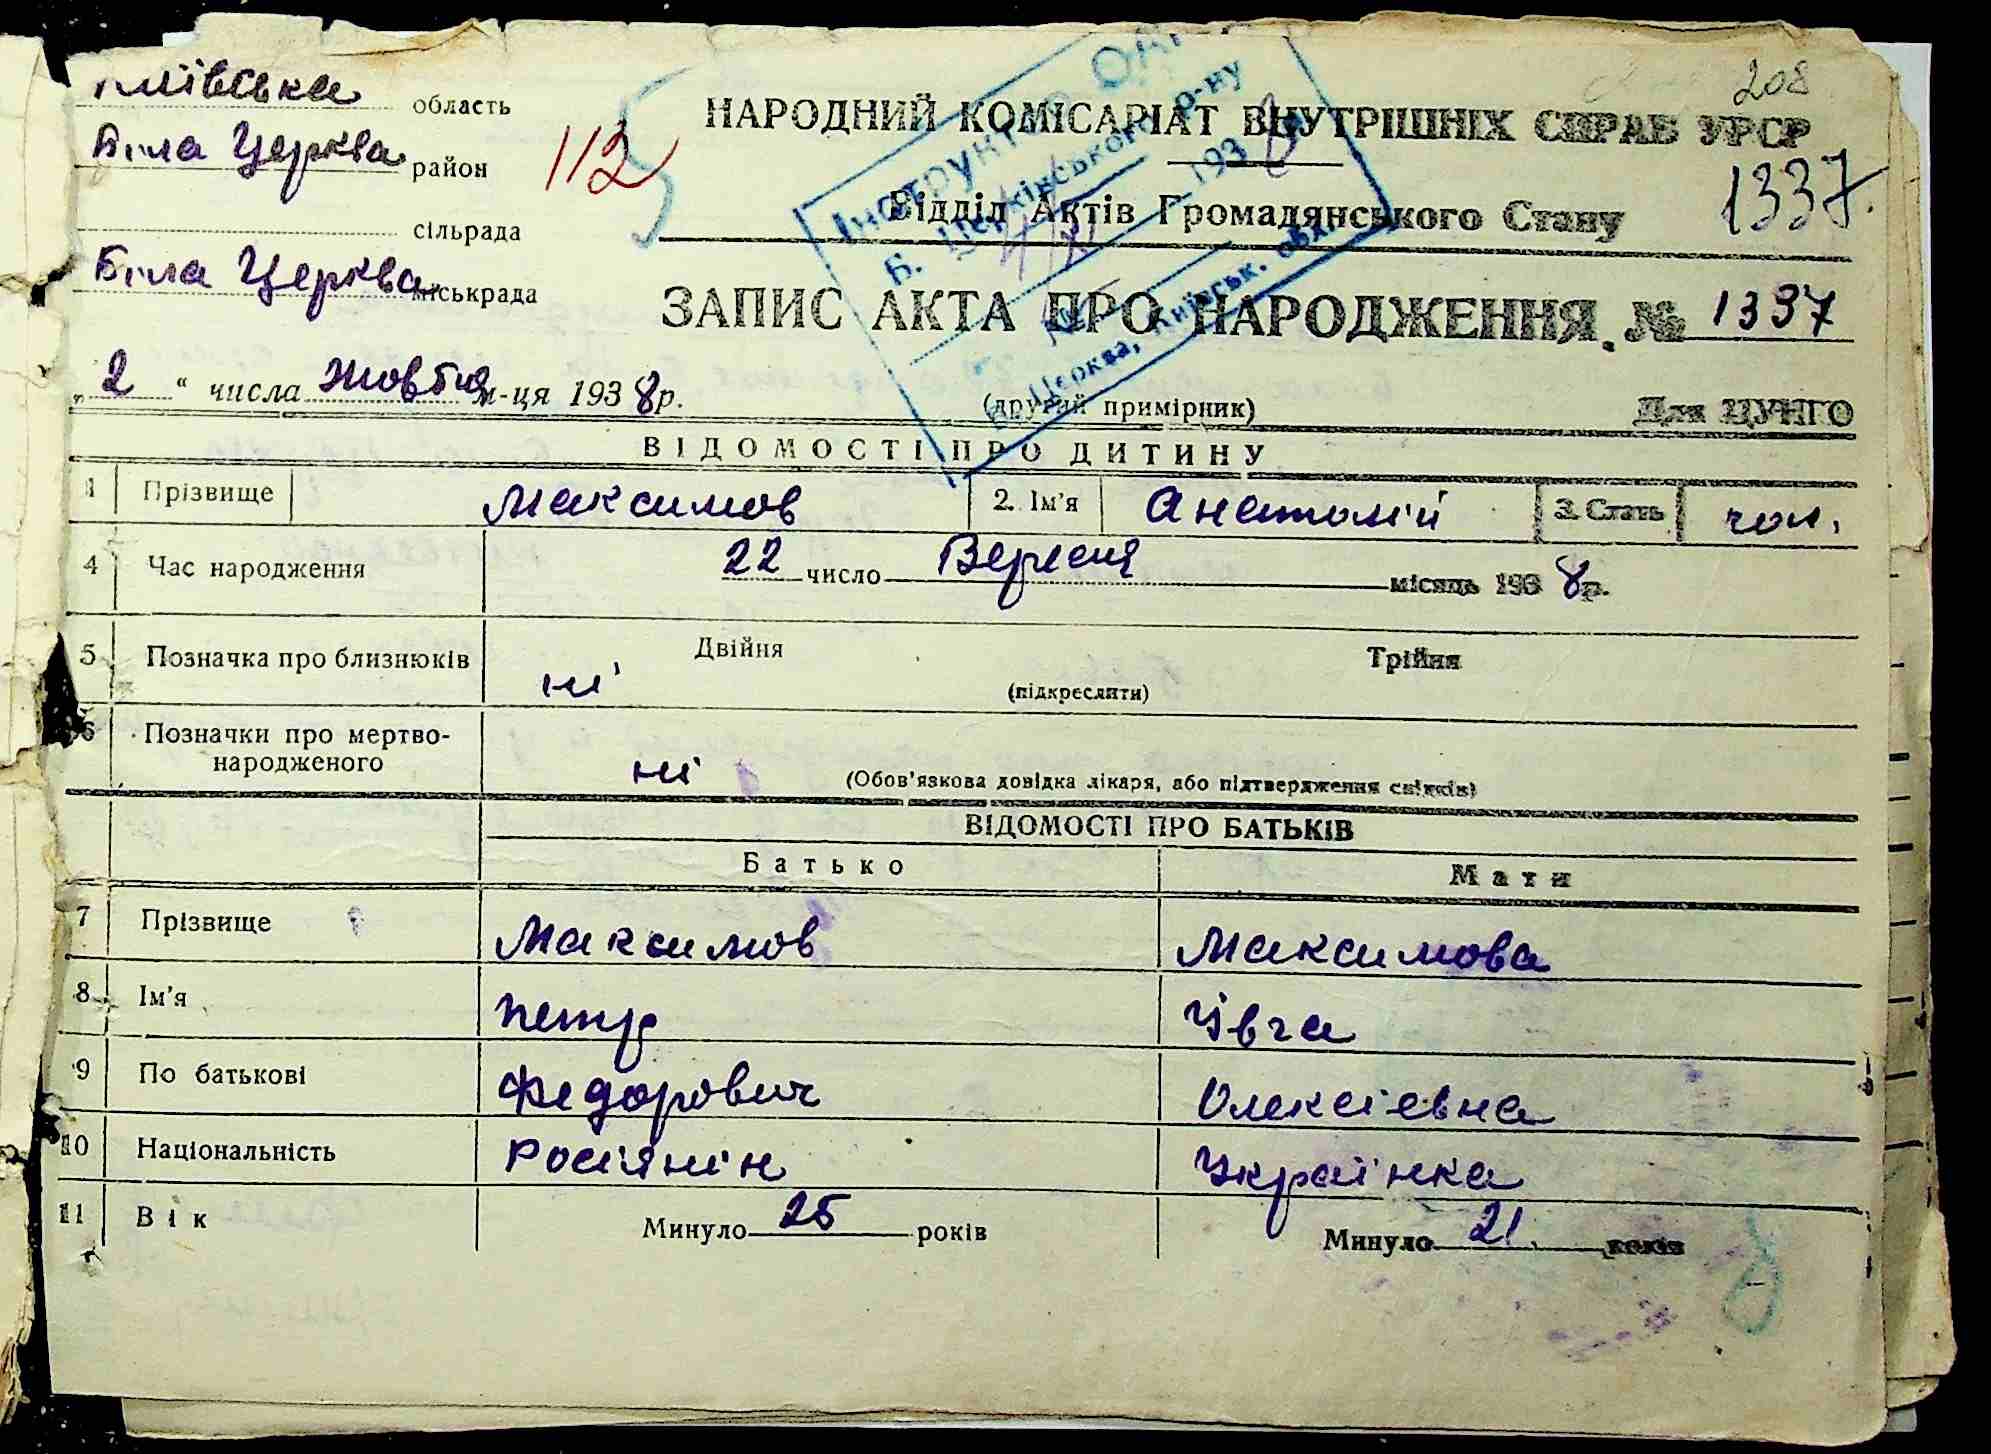 Київська область
208
НАРОДНИЙ КОМІСАРІАТ ВНУТРІШНІХ СПРАВ УРСР
Біла Церква район
112
1337.
Відділ Актів Громадянського Стану
сільрада
Біла Церква міськрада
ЗАПИС АКТА ПРО НАРОДЖЕННЯ № 1337
„2“ числа Жовтня м-ця 1938 р.
(другий примірник)
Для ЦУНГО
Інструктор
Б. Церківського р-ну
193
Б. Церква, Київськ. обл.
ВІДОМОСТІ ПРО ДИТИНУ
1 Прізвище Максимов 2. Ім'я Анатолій 3. Стать чол.
4 Час народження 22 число Вересня місяць 1938 р.
5 Позначка про близнюків ні Двійня Трійня
(підкреслити)
6 Позначки про мертво-
народженого ні (Обов'язкова довідка лікаря, або підтвердження свідків)
ВІДОМОСТІ ПРО БАТЬКІВ
Батько Мати
7 Прізвище Максимов Максимова
8 Ім'я Петр
9 По батькові Федорович Олексіевна
10 Національність Росіянін Українка
11 Вік Минуло 25 років Минуло 21 років